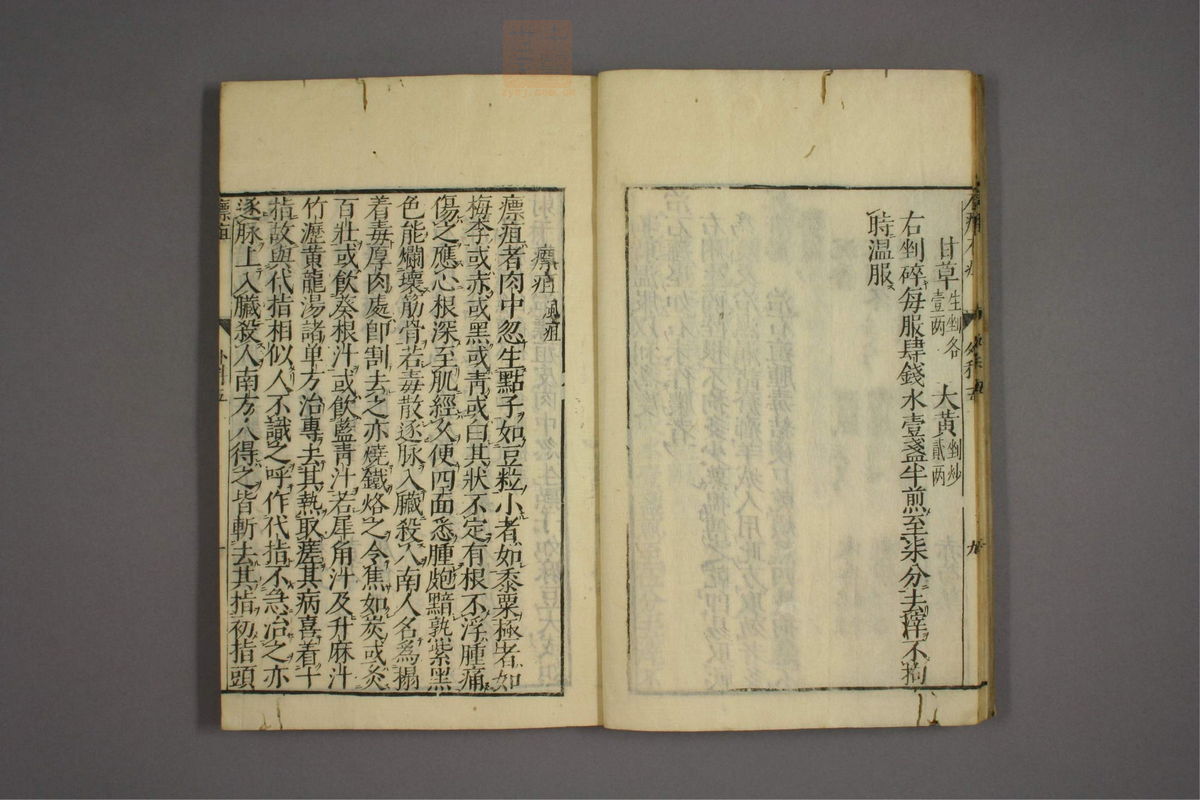 甘草生剉各壹两　大黃剉炒貳两
右剉碎每服肆錢水壹盞半煎至柒分去滓不拘
時溫服
瘭疽　風疽
瘭疽者肉中忽生點子如豆粒小者如黍粟極者如
梅李或赤或黑或靑或白其狀不定有根不浮腫痛
傷之應心根深至肌經久便四面悉腫皰黯熟紫黑
色能爛壞筋骨若毒散逐脉入臟殺人南人名為搨
着毒厚肉處卽割去之亦燒鐵烙之令焦如炭或灸
百壯或飲葵根汁或飲藍青汁若犀角汁及升麻汁
竹瀝黃龍湯諸单方治專去其熱取瘥其病喜着十
指故與代指相似人不識之呼作代指不急治之亦
逐脉上入臟殺人南方人得之皆斬去其指初指頭
瘭疽